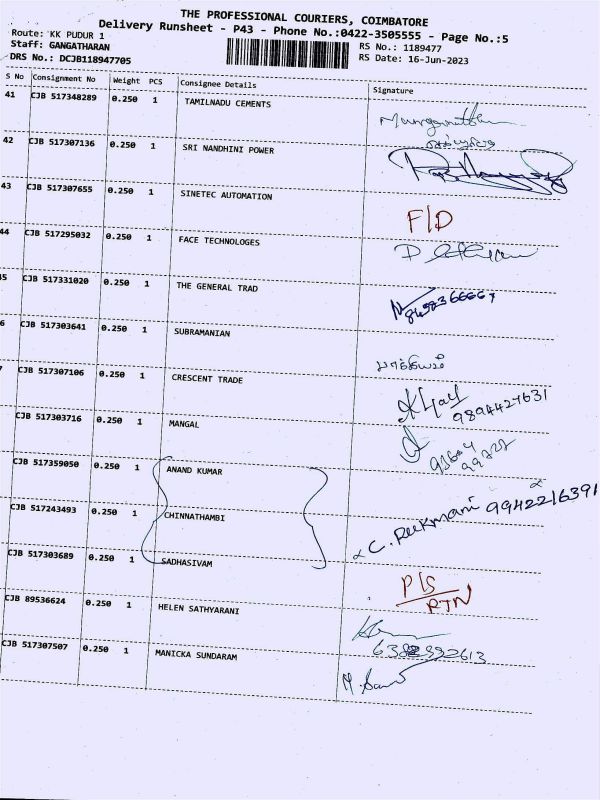 THE PROFESSIONAL COURIERS, COIMBATORE
Delivery Runsheet - P43 - Phone No.:0422-3505555 - Page No.:5
Route: KK PUDUR 1
Staff: GANGATHARAN
DRS No.: DCJB118947705
RS No.: 1189477
RS Date: 16-Jun-2023
S No Consignment No Weight PCS Consignee Details Signature
41 CJB 517348289 0.250 1 TAMILNADU CEMENTS
42 CJB 517307136 0.250 1 SRI NANDHINI POWER
43 CJB 517307655 0.250 1 SINETEC AUTOMATION F/D
44 CJB 517295032 0.250 1 FACE TECHNOLOGES
45 CJB 517331020 0.250 1 THE GENERAL TRAD
6 CJB 517303641 0.250 1 SUBRAMANIAN
7 CJB 517307106 0.250 1 CRESCENT TRADE 9894427631
CJB 517303716 0.250 1 MANGAL
CJB 517359050 0.250 1 ANAND KUMAR
CJB 517243493 0.250 1 CHINNATHAMBI C. Rukmani 9942216391
CJB 517303689 0.250 1 SADHASIVAM P/S
RTN
CJB 89536624 0.250 1 HELEN SATHYARANI
6382992613
CJB 517307507 0.250 1 MANICKA SUNDARAM